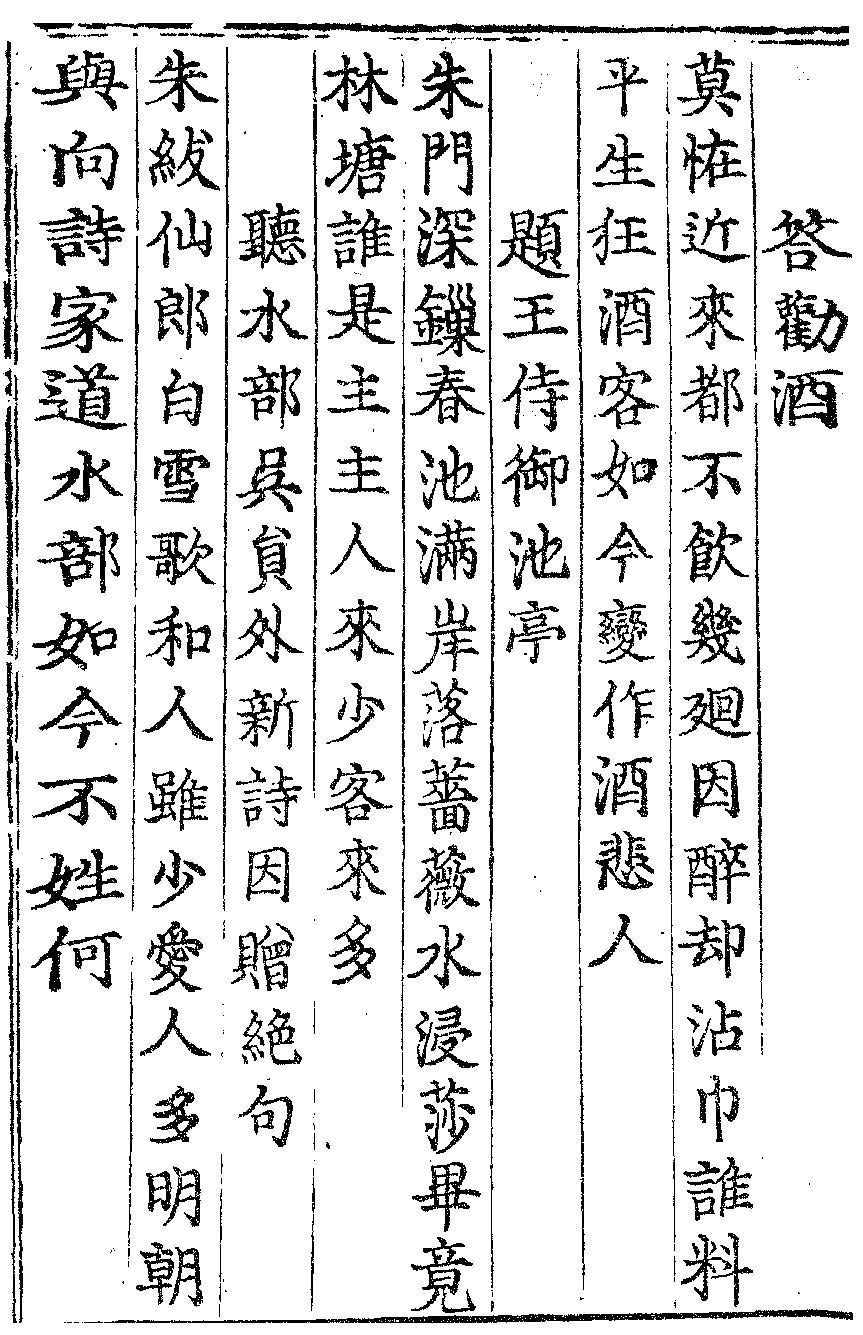 答勸酒
莫恠近來都不飲幾廻因醉却沾巾誰料
平生狂酒客如今變作酒悲人
題王侍御池亭
朱門深鏁春池滿岸落薔薇水浸莎畢竟
林塘誰是主主人來少客來多
聽水部吳貟外新詩因贈絶句
朱紱仙郎白雪歌和人雖少愛人多明朝
與向詩家道水部如今不姓何